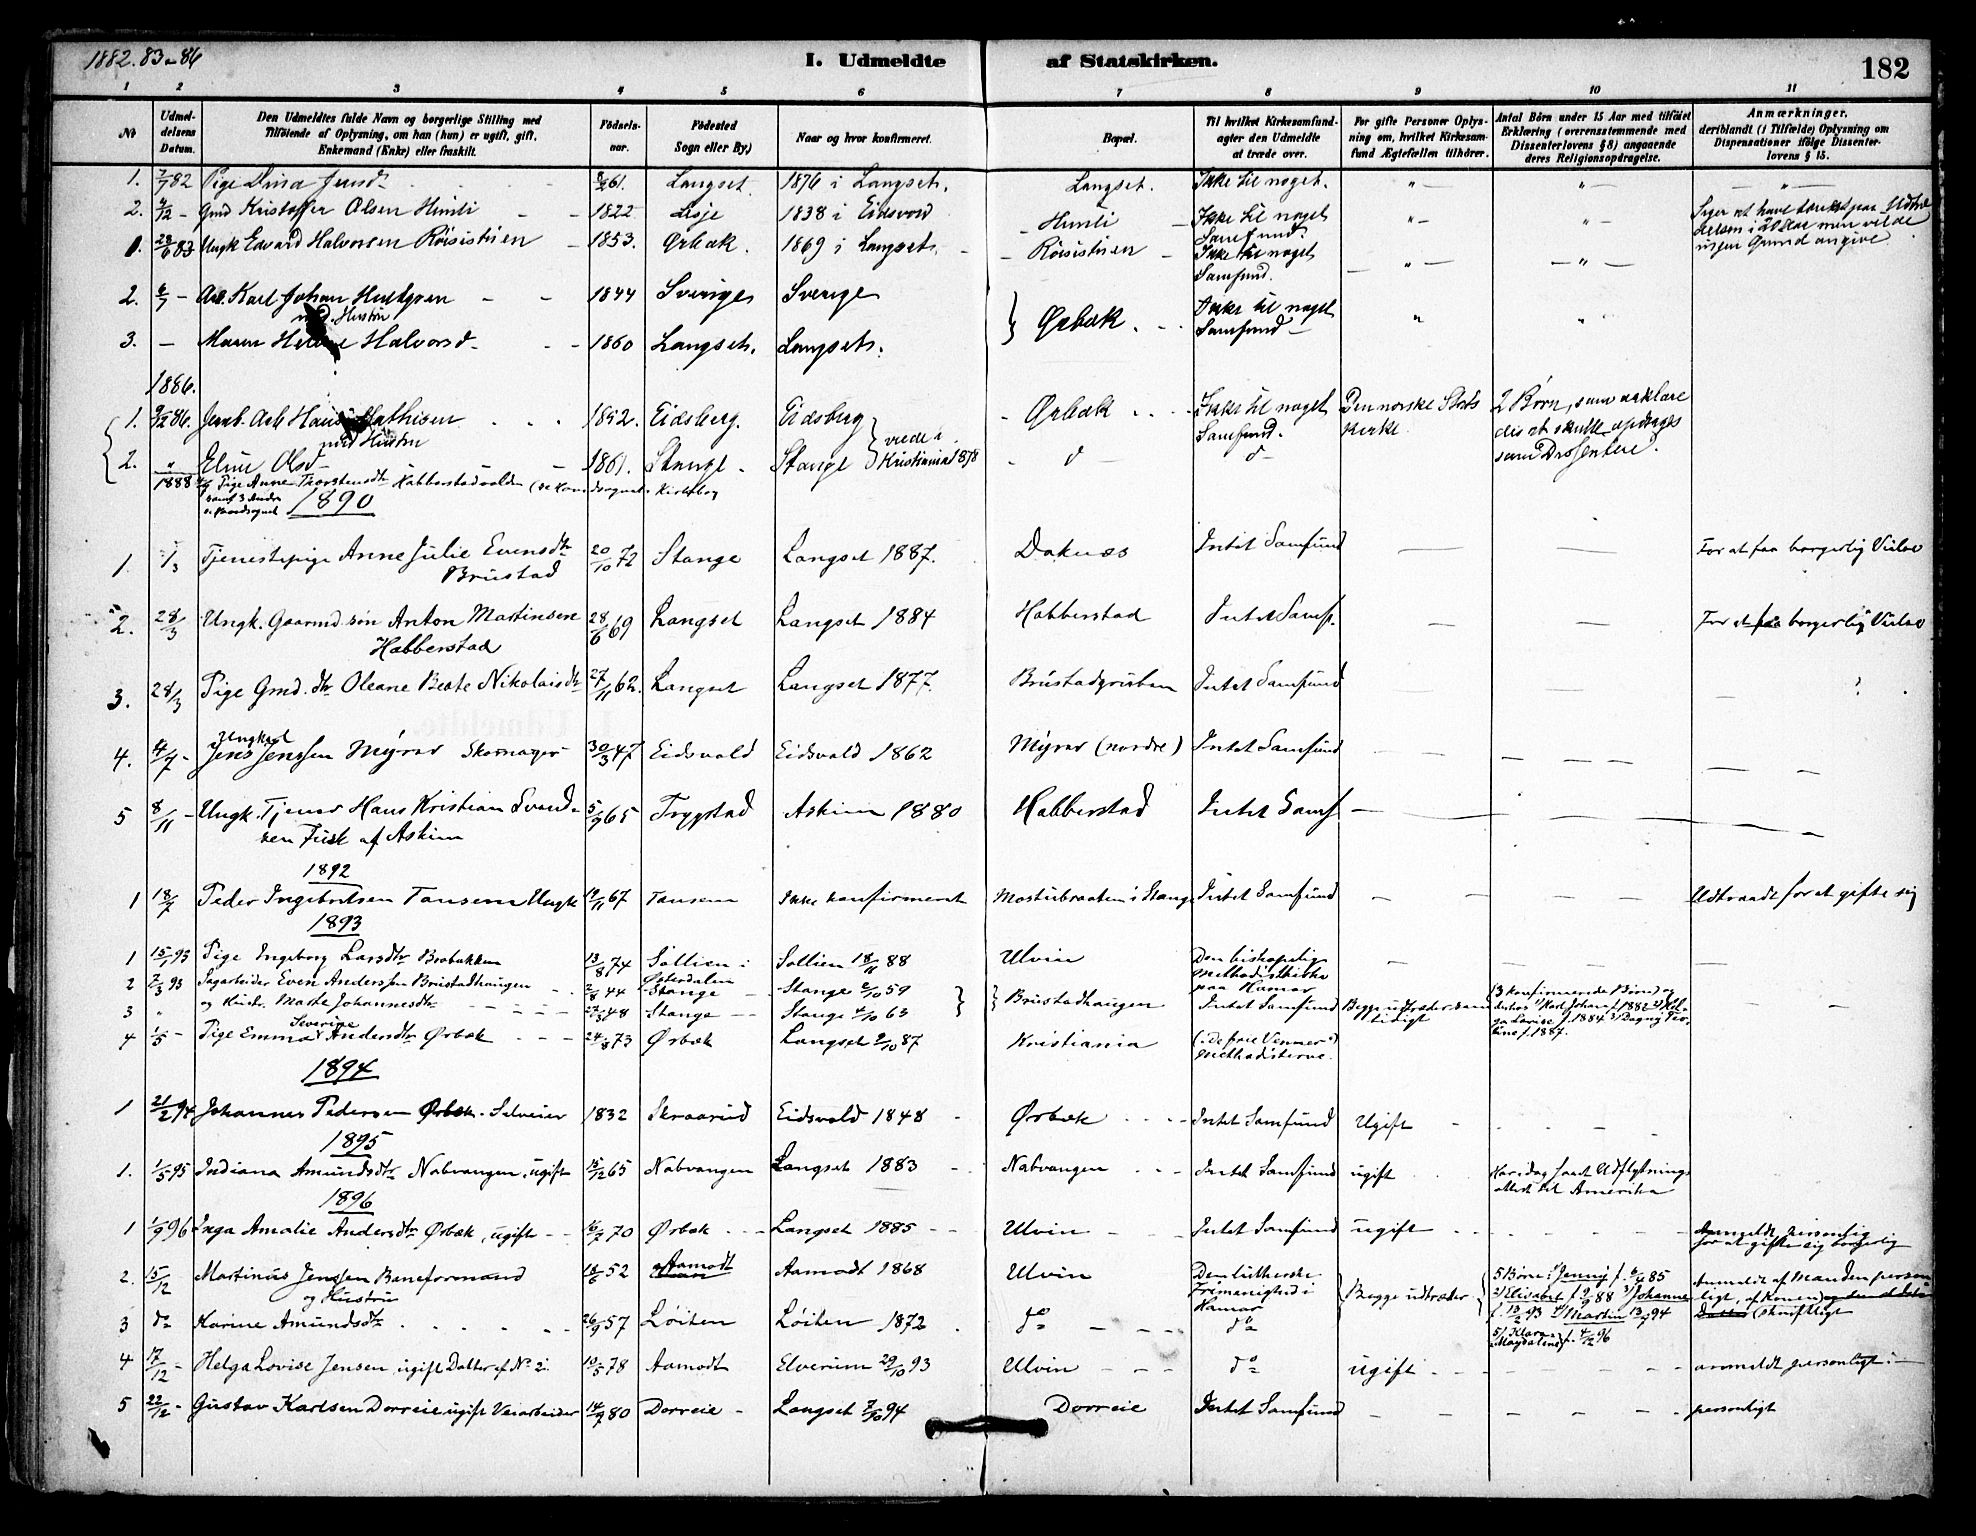 1882. 83 - 86
I. Udmeldte af Statskirken.
182
1 2 3 4 5 6 7 8 9 10 11
No
Udmeldelsens Datum.
Den Udmeldtes fulde Navn og borgerlige Stilling med
Tilføiende af Oplysning, om han (hun) er ugift, gift,
Enkemand (Enke) eller fraskilt.
Fødselsaar.
Fødested
Sogn eller By.)
Naar og hvor konfirmeret.
Bopæl.
Til hvilket Kirkesamfund
agter den Udmeldte
at træde over.
For gifte Personer Oplysning om, hvilket Kirkesamfund Ægtefællen tilhører.
Antal Børn under 15 Aar med tilføiet
Erklæring (overensstemmende med
Dissenterlovens § 8) angaaende
deres Religionsopdragelse.
Anmærkninger,
deriblandt (i Tilfælde) Oplysning om
Dispensationer ifølge Dissenterlovens § 15.
1. 7/7 82 Pige Dina Jensdr 61. Langset. 1876 i Langset. Langset. Ikke til noget.
2. 4/12 - Gmd Kristoffer Olsen Himli 1822 1838 i Eidsvold Himli Ikke til noget Samfund.
1. 28/6 83 Ungk Edvard Halvorsen Röisistuen 1853. Ørbæk. 1869 i Langset. Röisistuen Ikke til noget Samfund.
2. 6/7 - Arb. Karl Johan Hultgren 1844 Sverige Sverige
med Hustru
} Ørbæk. Ikke til noget Samfund
3. - Maren Helene Halvorsd 1860 Langset. Langset.
1886.
1. 9/12 86. Jernb. Arb Hans Mathisen 1852. Eidsberg. Eidsberg Ørbæk Ikke til noget Samfund. Den norske Stats Kirke. 2 Børn, som erklæredes at skulle opdrages som Dissentere.
med Hustru
2. " Eline Olsd 1861. Stange Stange viede i Kristiania 1878
1888 Pige Anne Thorstensdtr Habberstadvolden
samt 3 Andre
1890
1. 1/3 Tjenestepige Anne Julie Evensdtr 20/10 72 Stange Langset 1887. Doknes Intet Samfund For at faa borgerlig Vielse
Brustad
2. 28/3 Ungk. Gaarmd. søn Anton Martinsen 28/6 69 Langset Langset 1884 Habberstad Intet Samf. For at faa borgerlig Vielse
Habberstad
3. 28/3 Pige Gmd. dtr Oleane Beate Nikolaisdtr 27/11 62. Langset Langset 1877. Brustadgruben Intet Samfund
Ungkarl
4. 14/7 - Jens Jenssen Myrer Skomager 30/3 47 Eidsvold Eidsvold 1862 Myrer (nordre) Intet Samfund
5 8/11 - Ungk. Tjener Hans Kristian Svendsen Fusk af Askim 5/9 65 Trygstad Askim 1880 Habberstad Intet Samf
1892
1 18/7 Peder Ingebretsen Tansem Ungk 19/11 67 Tansem Ikke konfirmeret Mostubraaten i Stange Intet Samfund Udtraadt for at gifte sig
1893
1 15/1 93 Pige Ingeborg Larsdtr Brobakken 13/8 74 Sollien i Østerdalen Sollien 18/11 88 Ulvin Den biskopelig methodistkirke paa Hamar
2 7/3 93 Sagarbeider Even Anderssen Brustadhaugen 2/8 44 Stange Stange 2/10 59
3 " og Hustr. Marte Johannesdtr 27/3 48 Stange Stange 4/10 63 } Brustadhaugen Intet Samfund Begge udtræder samtidigt (3 konfirmerede Børn) og desuden 1) Karl Johan f. 1882 2) Helga Lovise f. 1884 3) Dagny f. 1887.
4 1/5 - Pige Emma Severine Andersdtr Ørbæk 24/8 73 Ørbæk Langset 2/10 87 Kristiania (de frie Venner) Methodisterne.
1894
1 21/2 94 Johannes Pedersen Ørbæk. Selveier 1832 Skraarud Eidsvold 1848 Ørbæk Intet Samfund Ugift
1895
1. 1/5 95 Indiana Amundsdtr Nabvangen, ugift 15/12 65 Nabvangen Langset 1883 Nabvangen Intet Samfund ugift Har idag faaet Udflytningsattest til Amerika
1896
1 1/9 96 Inga Amalie Andersdtr Ørbæk, ugift 16/7 70 Ørbæk Langset 1885 Ulvin Intet Samfund ugift Anmeldt personlig for at gifte sig borgerlig
2. 15/12 Martinus Jenssen Baneformand 18/6 52 Aamodt Aamodt 1868 Ulvin Den lutherske Frimenighed i Hamar } Begge udtræder { 5 Børn: 1) Jenny f. 6/4 85 2) Elisabet f. 9/9 88 3) Johanne f. 13/2 93 4) Martin 13/7 94 5) Klara Magdalene f. 4/12 96 Anmeldt af Manden personligt, af Konen skriftligt
og Hustru
3 do Karine Amundsdtr 26/9 57 Løiten Løiten 1872 do do
4 17/12 - Helga Lovise Jensen, ugift Datter af No 2. 10/5 78 Aamodt Elverum 29/10 93 Ulvin do ugift anmeldt personligt
5 22/12 - Gustav Karlsen Dorreie ugift Veiarbeider 14/9 80 Dorreie Langset 7/10 94 Dorreie Intet Samfund personligt